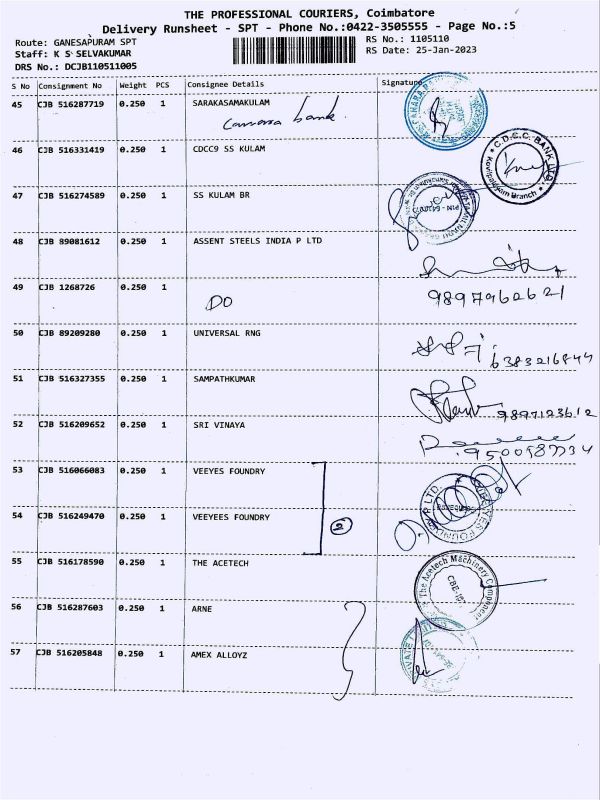 THE PROFESSIONAL COURIERS, Coimbatore
Delivery Runsheet - SPT - Phone No.:0422-3505555 - Page No.:5
Route: GANESAPURAM SPT RS No.: 1105110
Staff: K S SELVAKUMAR RS Date: 25-Jan-2023
DRS No.: DCJB110511005
S No Consignment No Weight PCS Consignee Details Signature
45 CJB 516287719 0.250 1 SARAKASAMAKULAM
bank.
46 CJB 516331419 0.250 1 CDCC9 SS KULAM
C.D.C.C. BANK LTD.
Branch
47 CJB 516274589 0.250 1 SS KULAM BR
48 CJB 89081612 0.250 1 ASSENT STEELS INDIA P LTD
49 CJB 1268726 0.250 1 DO
9897962621
50 CJB 89209280 0.250 1 UNIVERSAL RNG
6383216844
51 CJB 516327355 0.250 1 SAMPATHKUMAR
9897123612
52 CJB 516209652 0.250 1 SRI VINAYA
53 CJB 516066083 0.250 1 VEEYES FOUNDRY
2
54 CJB 516249470 0.250 1 VEEYEES FOUNDRY
55 CJB 516178590 0.250 1 THE ACETECH
The Acetech Machinery Component
56 CJB 516287603 0.250 1 ARNE
57 CJB 516205848 0.250 1 AMEX ALLOYZ